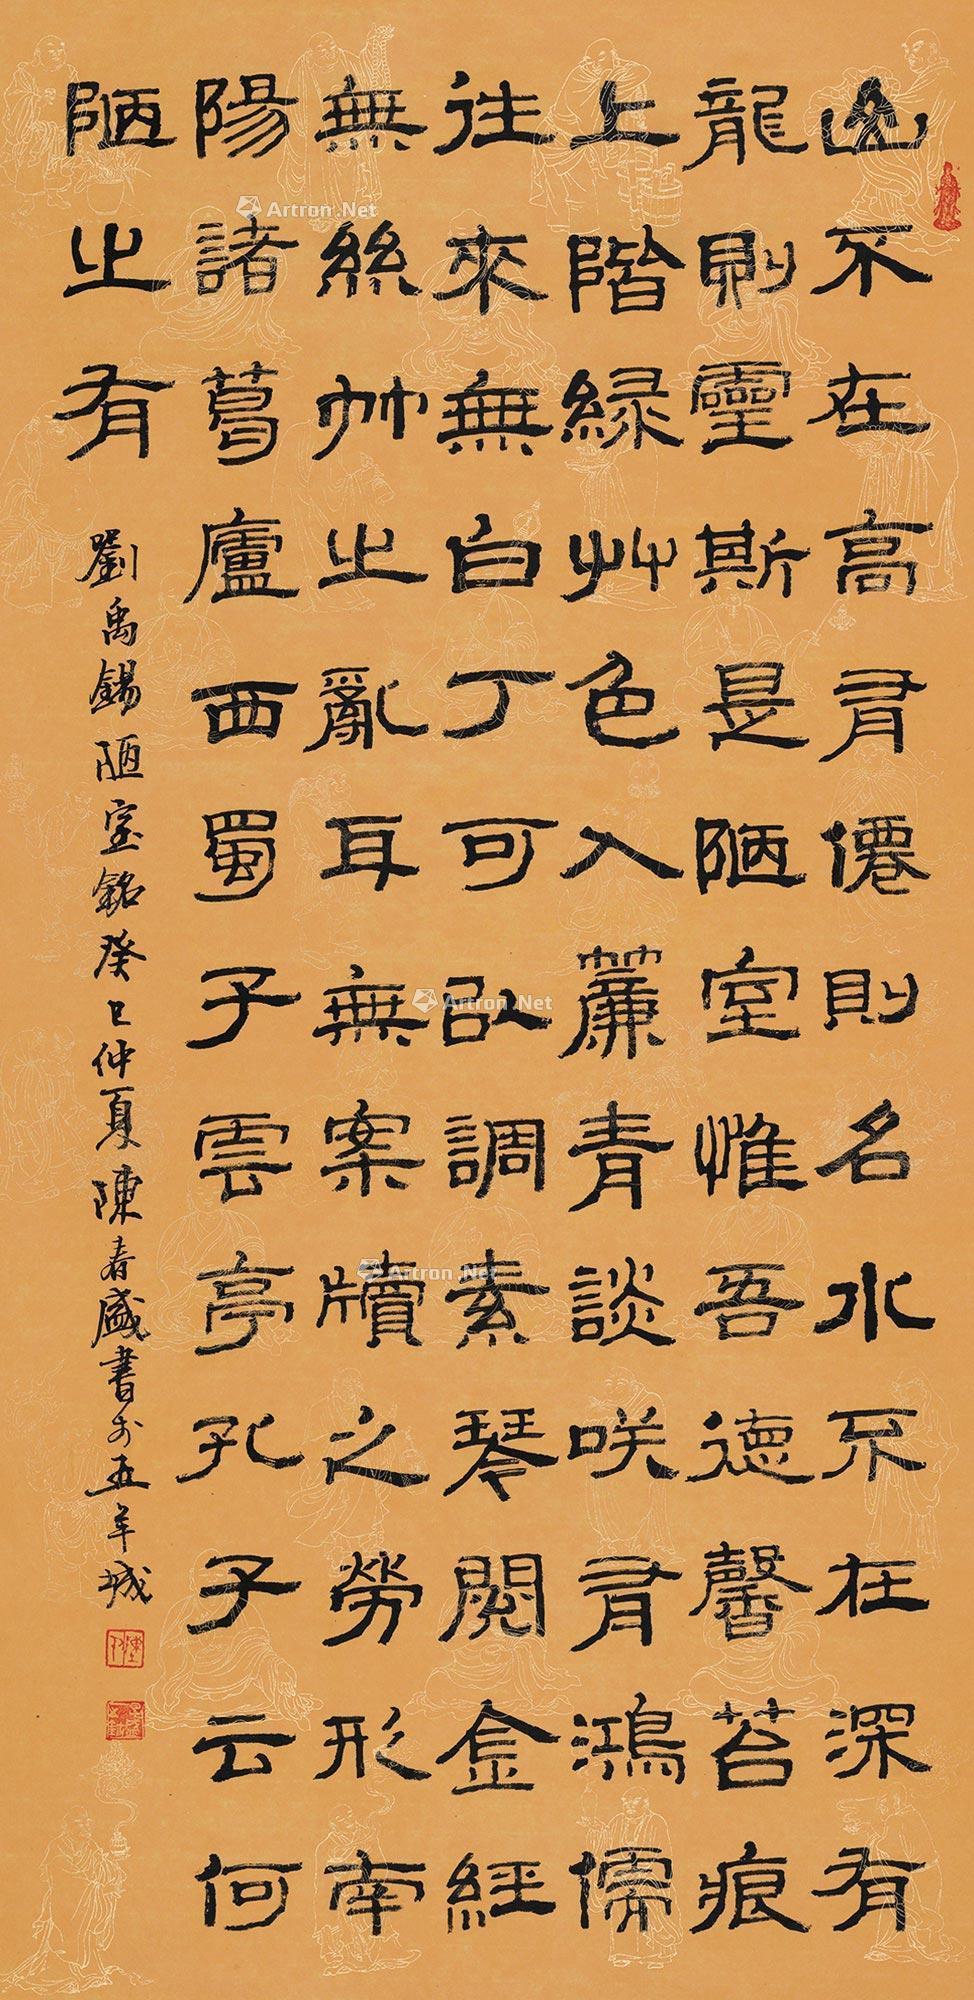 山不在高有僊則名水不在深有
龍則靈斯是陋室惟吾德馨苔痕
上階緑艸色入簾青談咲有鴻儒
往來無白丁可以調素琴閱金經
無絲竹之亂耳無案牘之勞形南
陽諸葛廬西蜀子雲亭孔子云何
陋之有
劉禹錫陋室銘癸巳仲夏陳春盛書於五羊城
Artron.Net
Artron.Net
Artron.Net